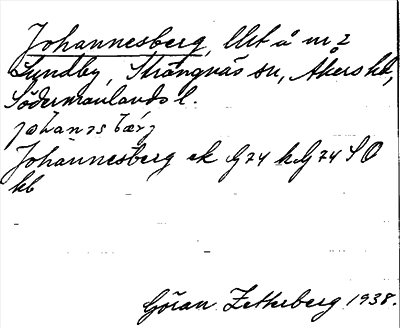 Johannesberg, lht å nr 2
Lundby, Strängnäs sn, Åkers hd,
Södermanlands l.
johanəsbærj
Johannesberg ek G74 h.G74 SO
kb
Göran Zetterberg 1938.